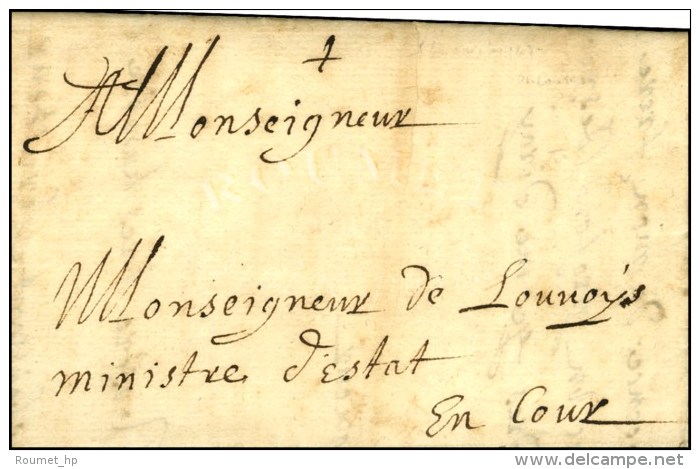 +
A Monseigneur
Monseigneur de Louvoÿs
ministre d'Estat
En Cour
Roumet_hp
delcampe.net